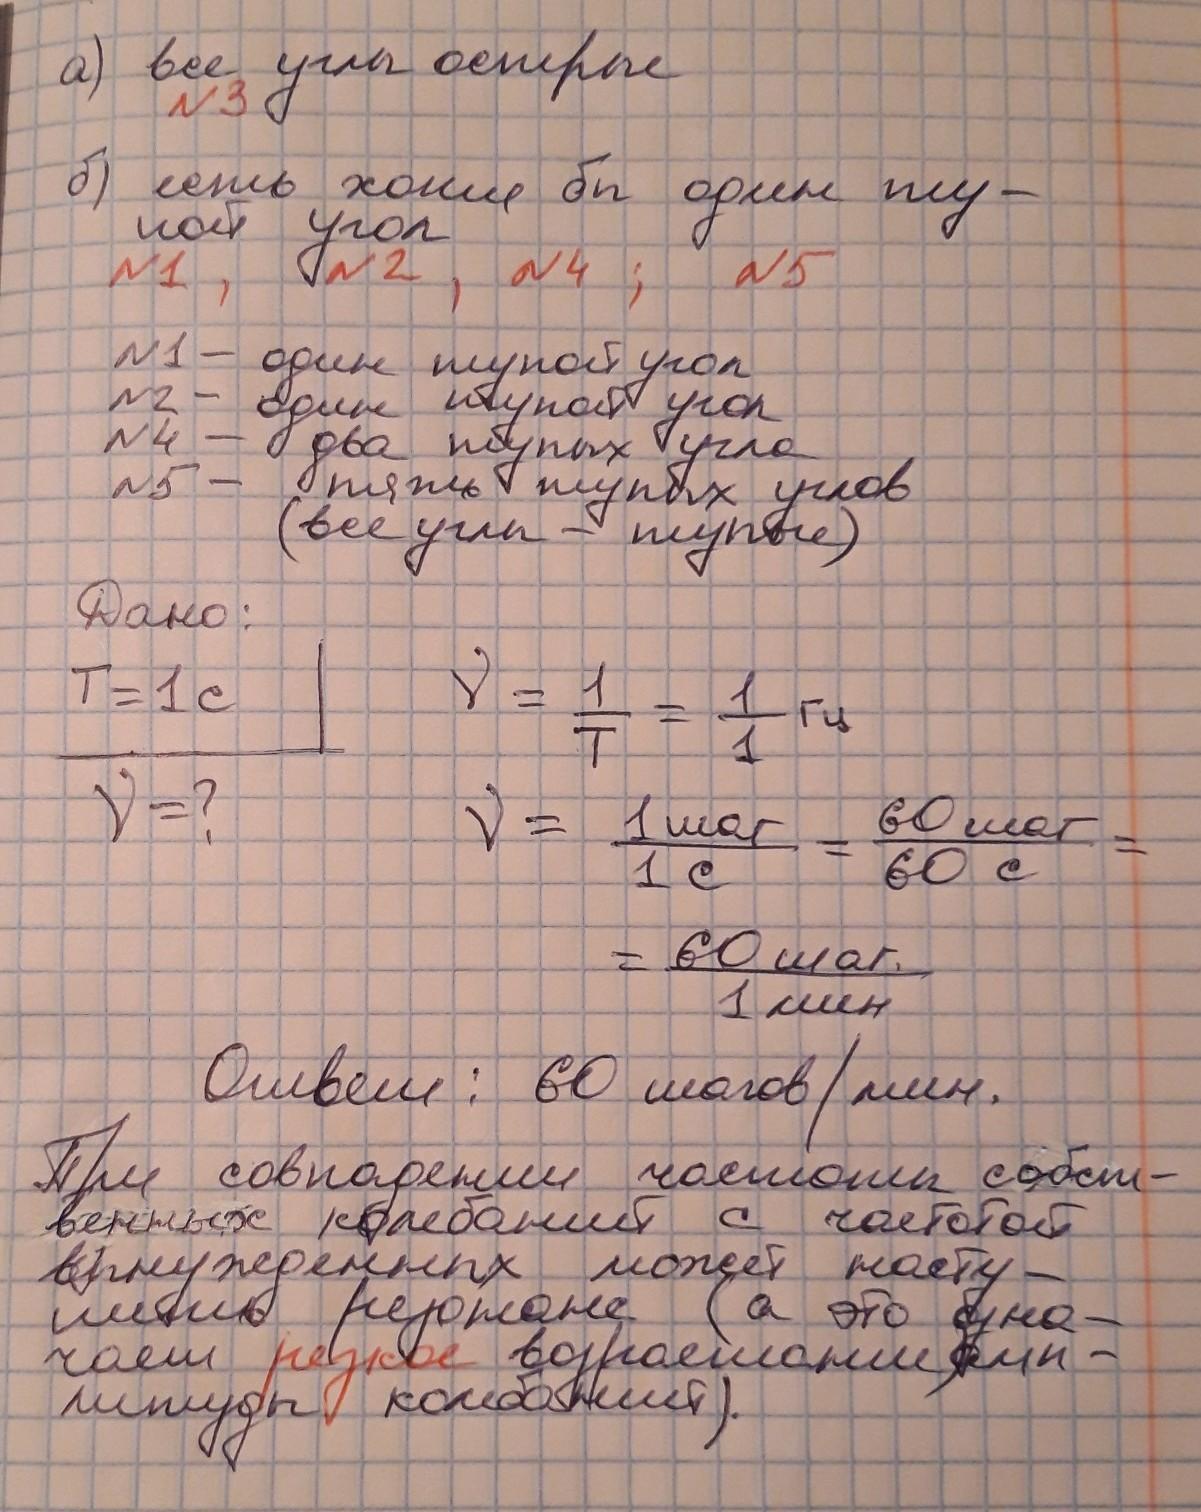 а) все углы острые
№3
б) есть хотя бы один ту-
пой угол
№1, №2, №4; №5
№1 - один тупой угол
№2 - один тупой угол
№4 - два тупых угла
№5 - пять тупых углов
(все углы - тупые)
Дано:
T=1с
ν = 1/T = 1/1 Гц
ν=?
ν = 1 шаг/1 с = 60 шаг/60 с =
= 60 шаг./1 мин
Ответ: 60 шагов/мин.
При совпадении частоты собст-
венных колебаний с частотой
вынужденных может насту-
пить резонанс (а это озна-
чает резкое возрастание амп-
литуды колебаний).